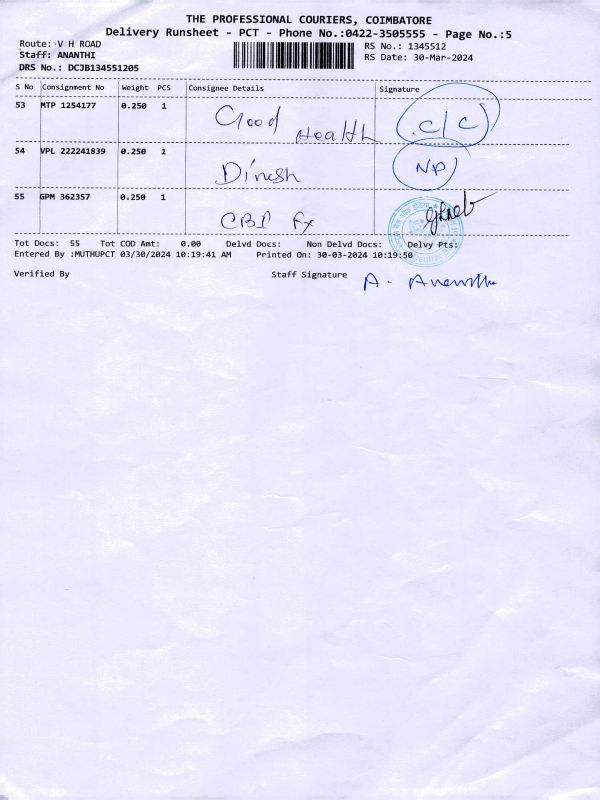 THE PROFESSIONAL COURIERS, COIMBATORE
Delivery Runsheet - PCT - Phone No.:0422-3505555 - Page No.:5
Route: V H ROAD
RS No.: 1345512
Staff: ANANTHI
RS Date: 30-Mar-2024
DRS No.: DCJB134551205
S No Consignment No Weight PCS Consignee Details Signature
53 MTP 1254177 0.250 1 Good Health C/C
54 VPL 222241839 0.250 1 Dinesh NP
55 GPM 362357 0.250 1 CBI Fx
Tot Docs: 55 Tot COD Amt: 0.00 Delvd Docs: Non Delvd Docs: Delvy Pts:
Entered By :MUTHUPCT 03/30/2024 10:19:41 AM Printed On: 30-03-2024 10:19:50
Verified By Staff Signature A.